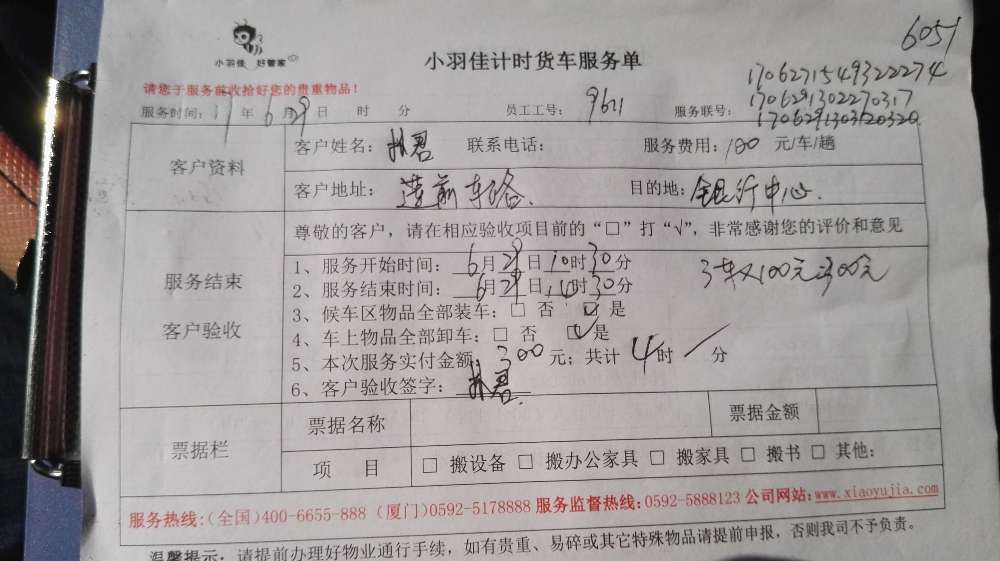 6051
小羽佳 好管家
小羽佳计时货车服务单
请您于服务前收拾好您的贵重物品！
170627154932​2274
1706291302270317
170629130312​0320
服务时间：17年6月29日 时 分 员工工号：9611 服务联号：
客户资料
客户姓名：孙君 联系电话： 服务费用：100 元/车/趟
客户地址：莲前东路 目的地：银行中心
服务结束
客户验收
尊敬的客户，请在相应验收项目前的“□”打“√”，非常感谢您的评价和意见
1、服务开始时间：6月29日10时30分
3车×100元=300元
2、服务结束时间：6月29日 时30分
3、候车区物品全部装车：□ 否 ☑ 是
4、车上物品全部卸车：□ 否 ☑ 是
5、本次服务实付金额：300元；共计4时/分
6、客户验收签字：孙君
票据栏
票据名称 票据金额
项 目 □ 搬设备 □ 搬办公家具 □ 搬家具 □ 搬书 □ 其他：
服务热线：(全国)400-6655-888 (厦门)0592-5178888 服务监督热线：0592-5888123 公司网站：www.xiaoyujia.com
温馨提示：请提前办理好物业通行手续，如有贵重、易碎或其它特殊物品请提前申报，否则我司不予负责。